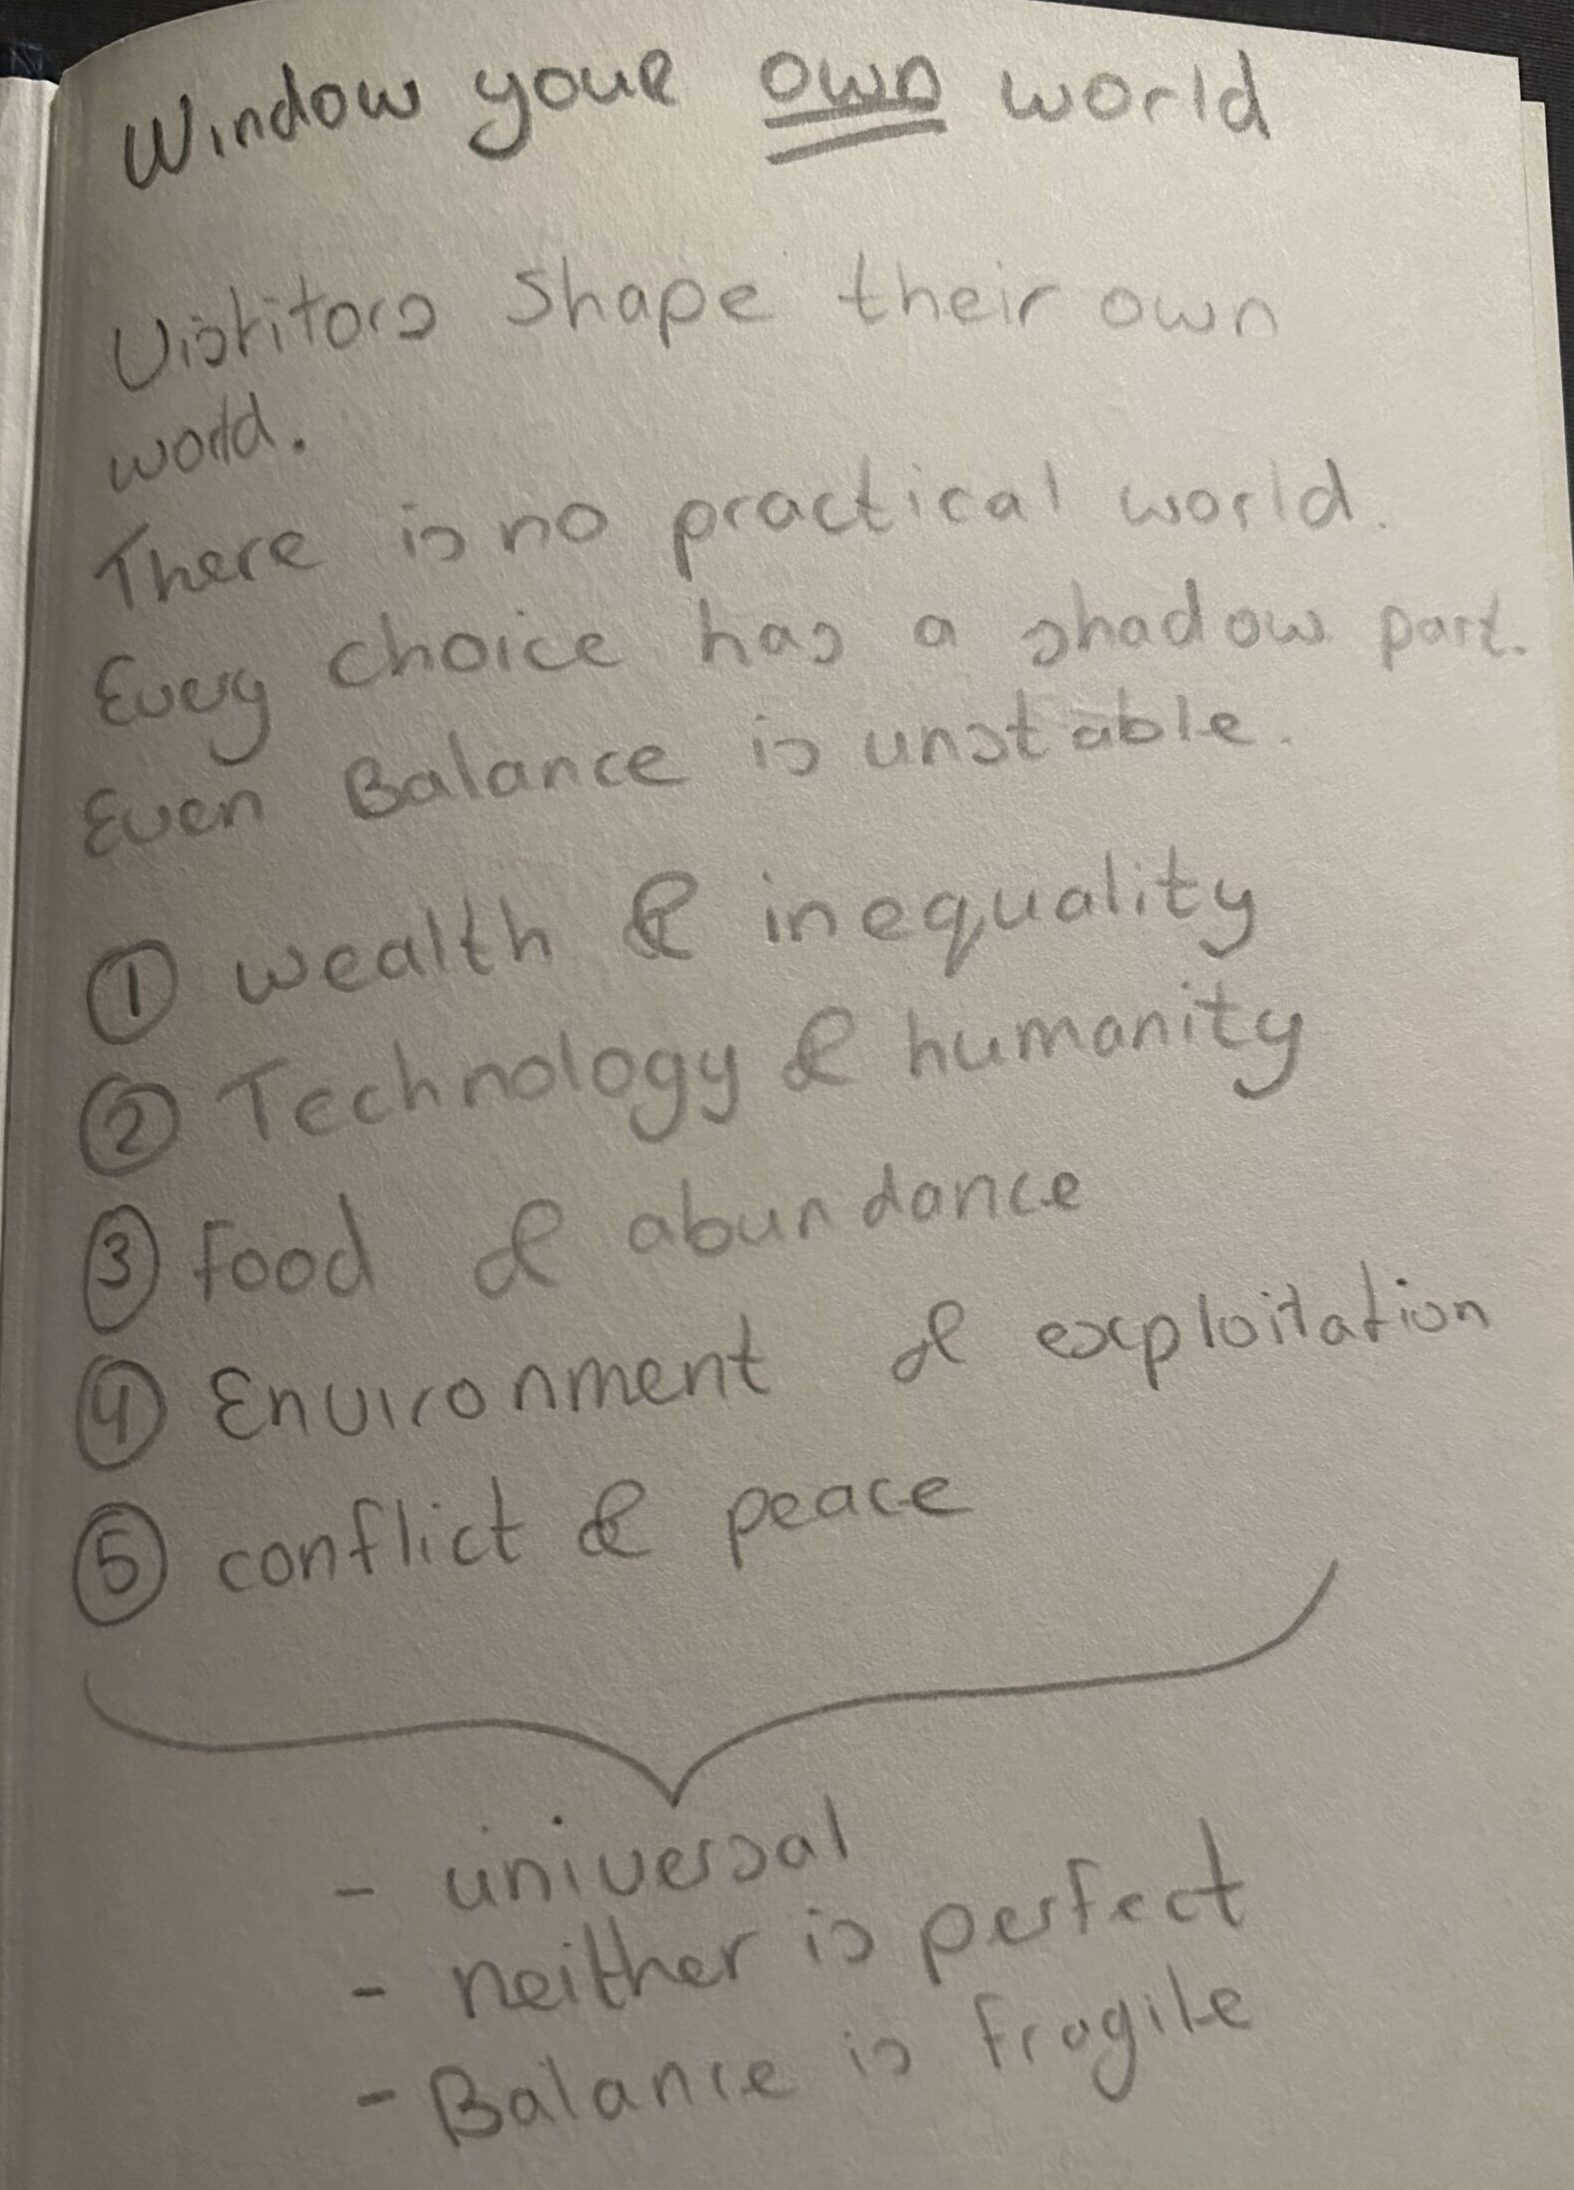 Window your own world
Visitors shape their own
world.
There is no practical world.
Every choice has a shadow part.
Even Balance is unstable.
① wealth & inequality
② Technology & humanity
③ food & abundance
④ Environment & exploitation
⑤ conflict & peace
- universal
- neither is perfect
- Balance is fragile